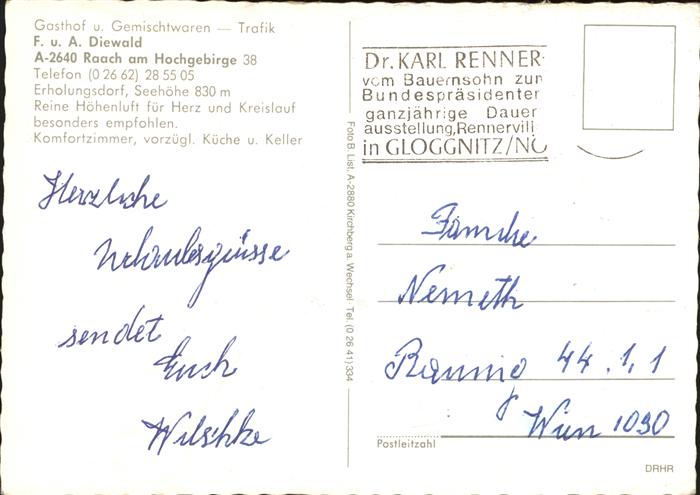 Gasthof u. Gemischtwaren — Trafik
F. u. A. Diewald
A-2640 Raach am Hochgebirge 38
Telefon (0 26 62) 28 55 05
Erholungsdorf, Seehöhe 830 m
Reine Höhenluft für Herz und Kreislauf
besonders empfohlen.
Komfortzimmer, vorzügl. Küche u. Keller
Herzliche
Urlaubsgrüsse
sendet
Euch
Wilschke
Foto B. List, A-2880 Kirchberg a. Wechsel Tel. (0 26 41) 334
Dr. KARL RENNER
vom Bauernsohn zur
Bundespräsidenter
ganzjährige Dauer
ausstellung, Rennervill
in GLOGGNITZ/NÖ
Familie
Nemeth
44.1,1
Wien 1090
Postleitzahl
DRHR